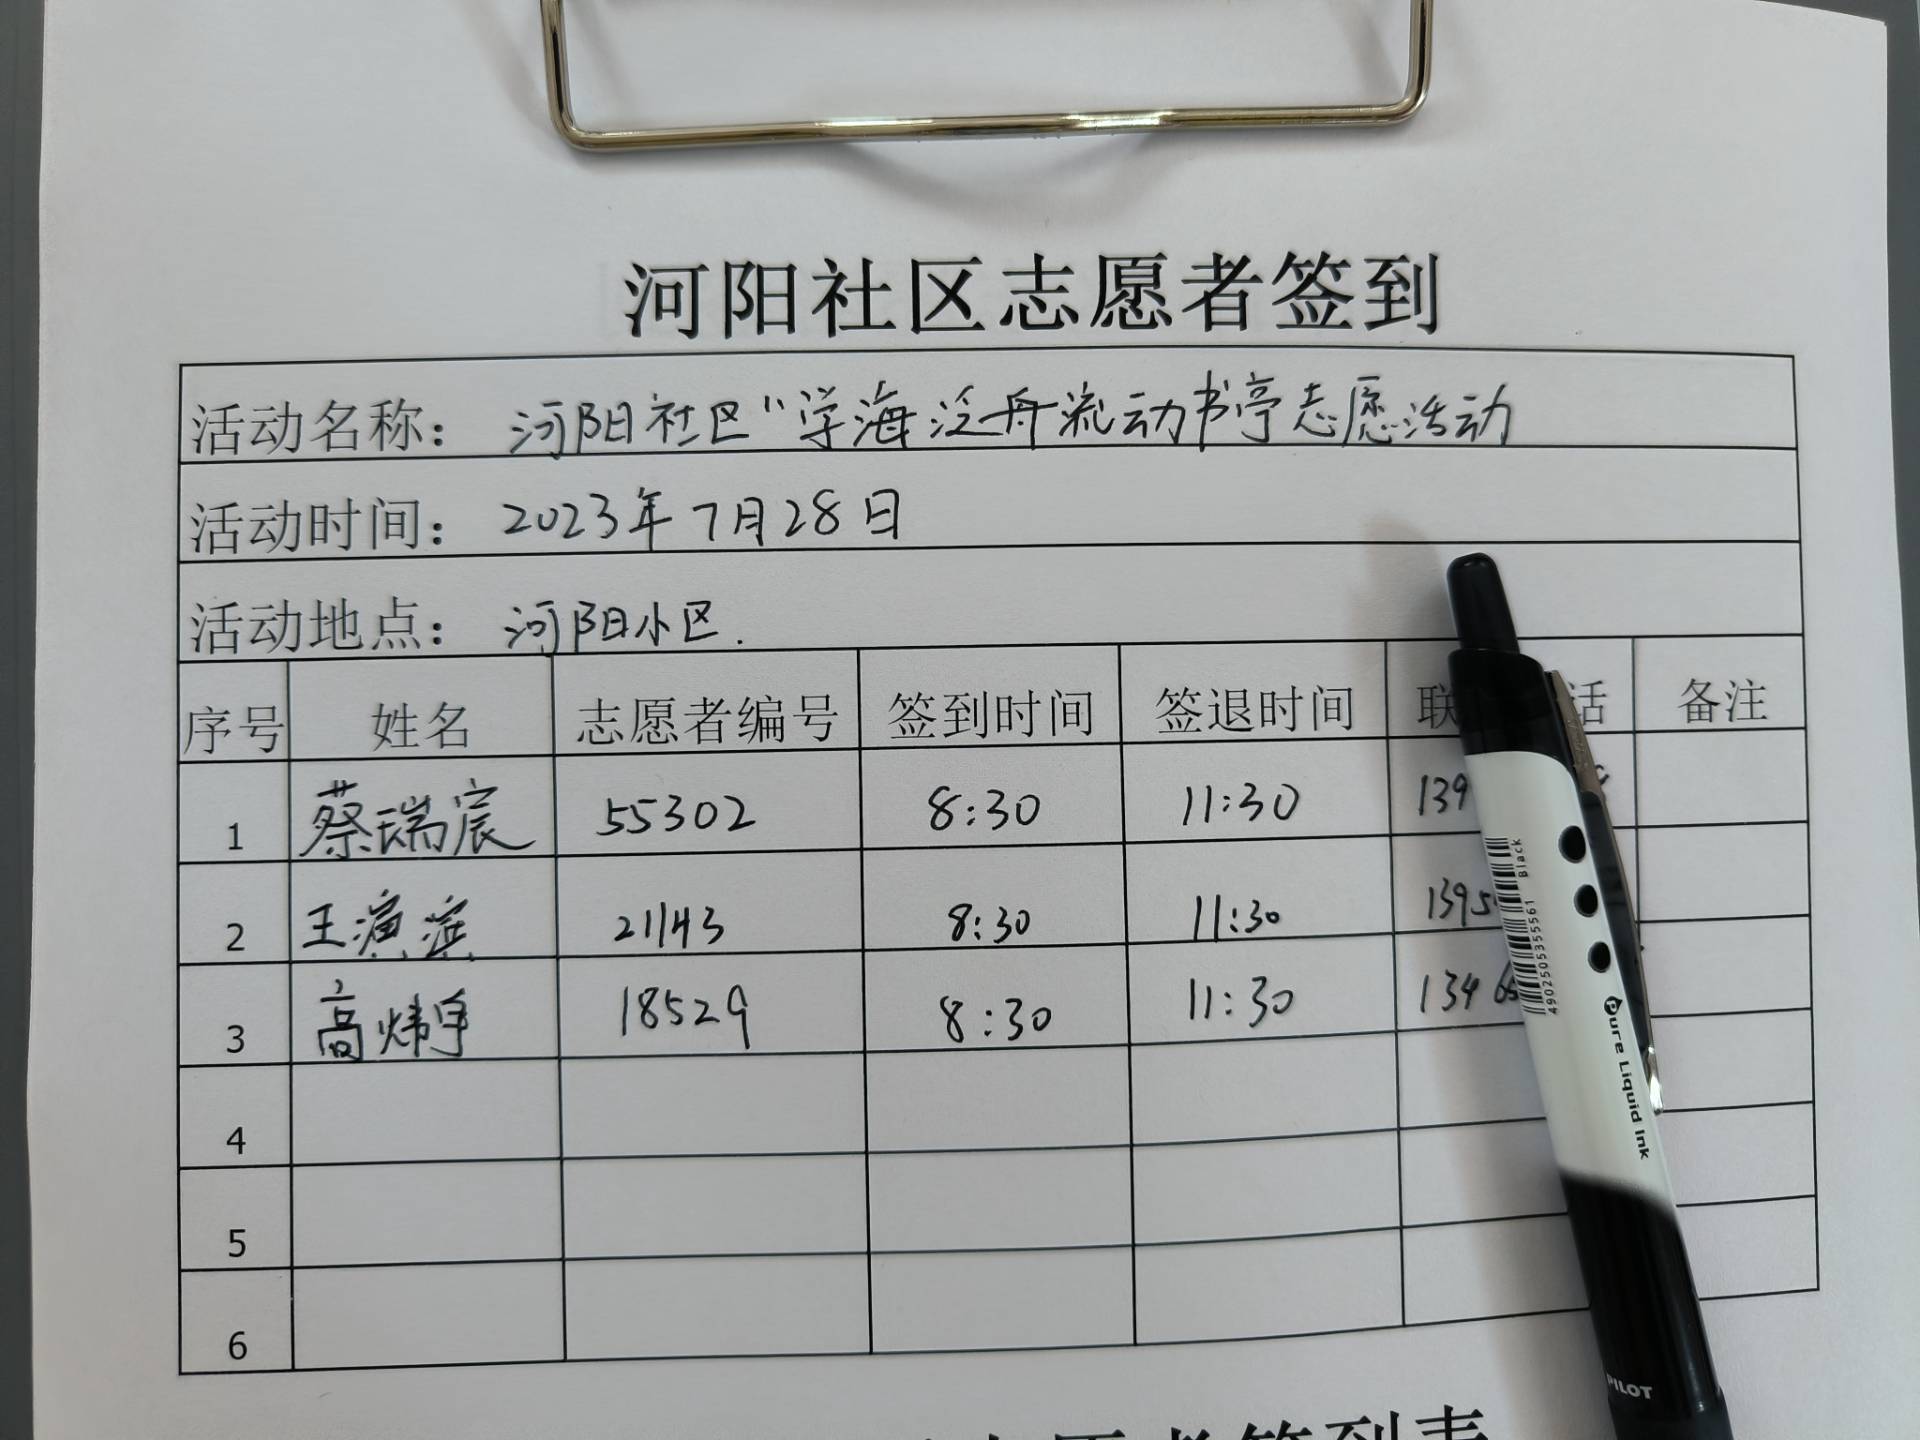 河阳社区志愿者签到
活动名称： 河阳社区“学海泛舟流动书亭志愿活动
活动时间： 2023年7月28日
活动地点： 河阳小区.
序号 姓名 志愿者编号 签到时间 签退时间 联 话 备注
1 蔡瑞宸 55302 8:30 11:30 139
2 王演滨 21143 8:30 11:30 1395
3 高炜 18529 8:30 11:30 134
4
5
6
Black
4902505355561
Pure Liquid Ink
PILOT
志愿者签到表